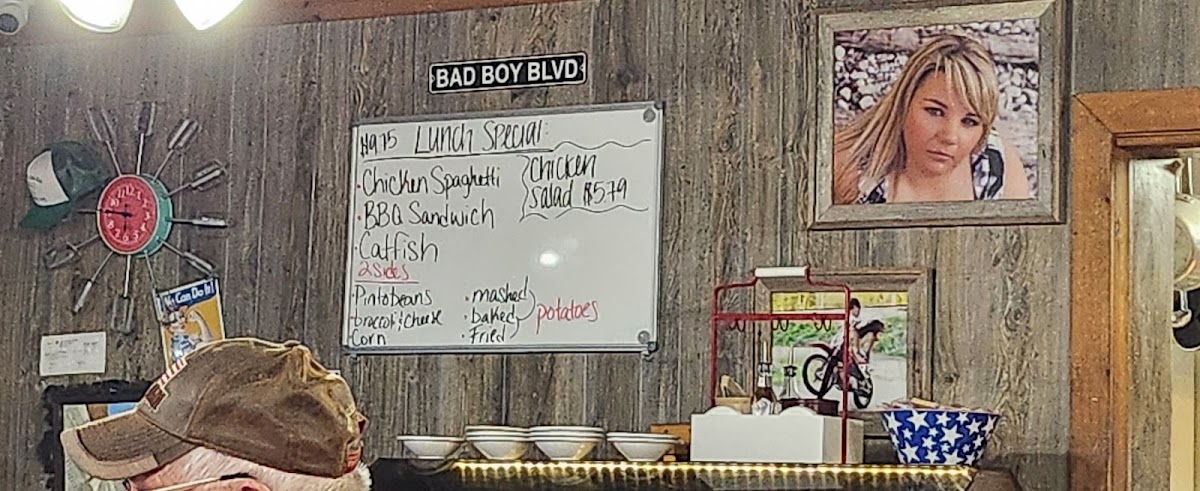 BAD BOY BLVD
$9.75 Lunch Special:
· Chicken Spaghetti
· BBQ Sandwich
· Catfish
2 sides
· Pinto beans
broccoli & cheese
Corn
Chicken
Salad $5.79
· mashed
· baked
· Fried
potatoes
We Can Do It!